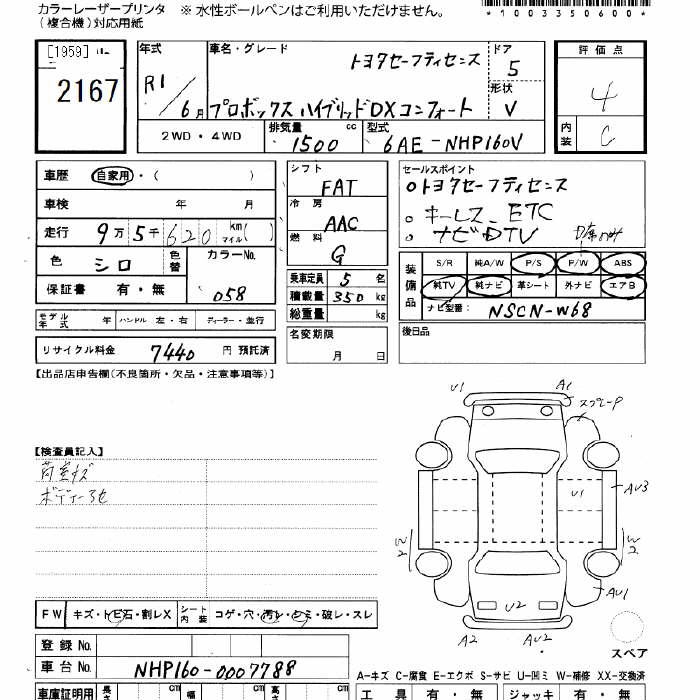 カラーレーザープリンタ ※ 水性ボールペンはご利用いただけません。
(複合機)対応用紙
*1003350600*
[1959]
2167
年式
R1/6月
車名・グレード
トヨタセーフティセンス
プロボックス ハイブリッドDXコンフォート
ドア
5
形状
V
評価点
4
内装
C
2WD・4WD
排気量
1500 cc
型式
6AE-NHP160V
車歴 自家用・( )
車検 年 月
走行 9万5千620 km マイル( )
色 シロ 色替 カラーNo. 058
保証書 有・無
シフト
FAT
冷房
AAC
燃料
G
乗車定員 5 名
積載量 350 kg
総重量 kg
セールスポイント
oトヨタセーフティセンス
o キーレス ETC
o ナビ DTV
装備品
S/R 純A/W P/S P/W ABS
純TV 純ナビ 革シート 外ナビ エアB
ナビ型番: NSCN-W68
モデル年式 年 ハンドル 左・右 ディーラー・並行
名変期限
月 日
後日品
リサイクル料金 7440 円 預託済
【出品店申告欄(不良箇所・欠品・注意事項等)】
U1 A1
スプレーP
U1
AU3
W2
W2
AU1
U2
A2 AU2
スペア
【検査員記入】
荷室キズ
FW キズ・トビ石・割レX シート内装 コゲ・穴・汚レ・シミ・破レ・スレ
登録No.
車台No. NHP160-0007788
A-キズ C-腐食 E-エクボ S-サビ U-凹ミ W-補修 XX-交換済
車庫証明用 長さ cm 幅 cm 高さ cm
工具 有・無 ジャッキ 有・無